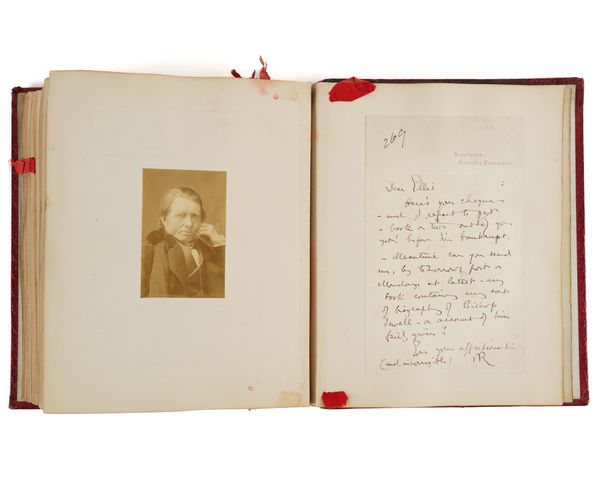 269
Brantwood,
Coniston Lancashire.
Dear Ellis
Here's your cheque –
– and I expect to get
a book or two out of you
yet! before I'm bankrupt.
– Meantime can you send
me, by tomorrow's post or
Monday's at latest – any
book containing any sort
of biography of Bishop
Jewell – or account of him
fairly given?
Ever your affectionate
(and incorrigible) JR